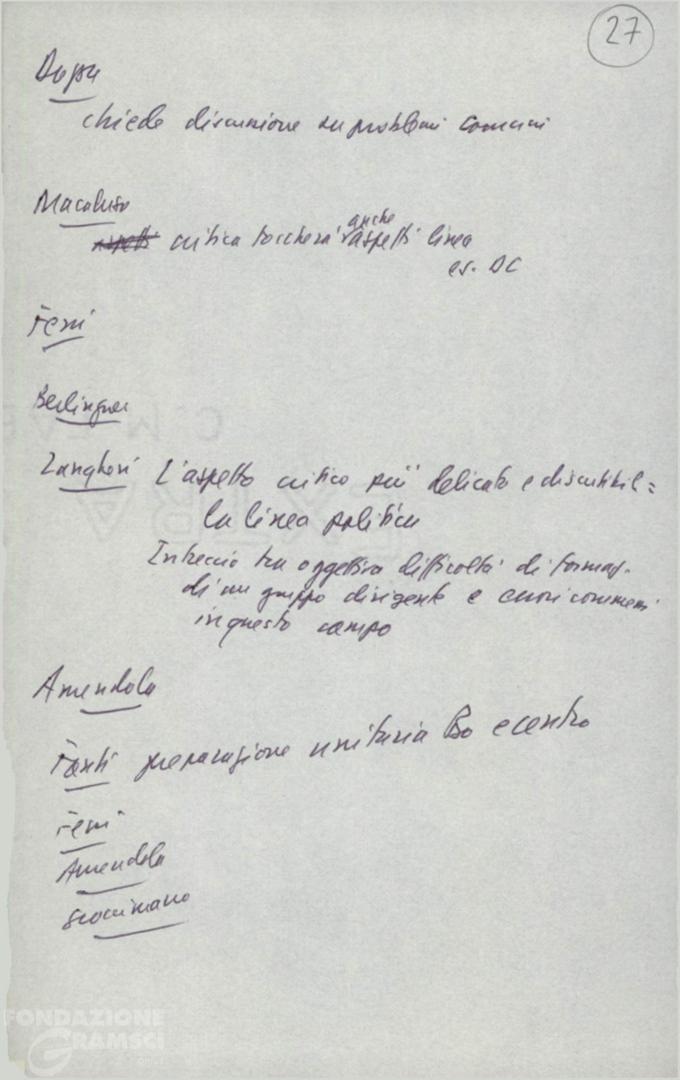 27
chiede discussione su problemi comuni
Macaluso
critica toccherà anche aspetti linea
es. DC
Berlinguer
Zangheri L'aspetto critico più delicato e discutibil=
la linea politica
Intreccio tra oggettiva difficoltà di formaz.
di un gruppo dirigente e errori commessi
in questo campo
Amendola
Fanti preparazione unitaria Bo e centro
Amendola
Scoccimarro
FONDAZIONE
GRAMSCI